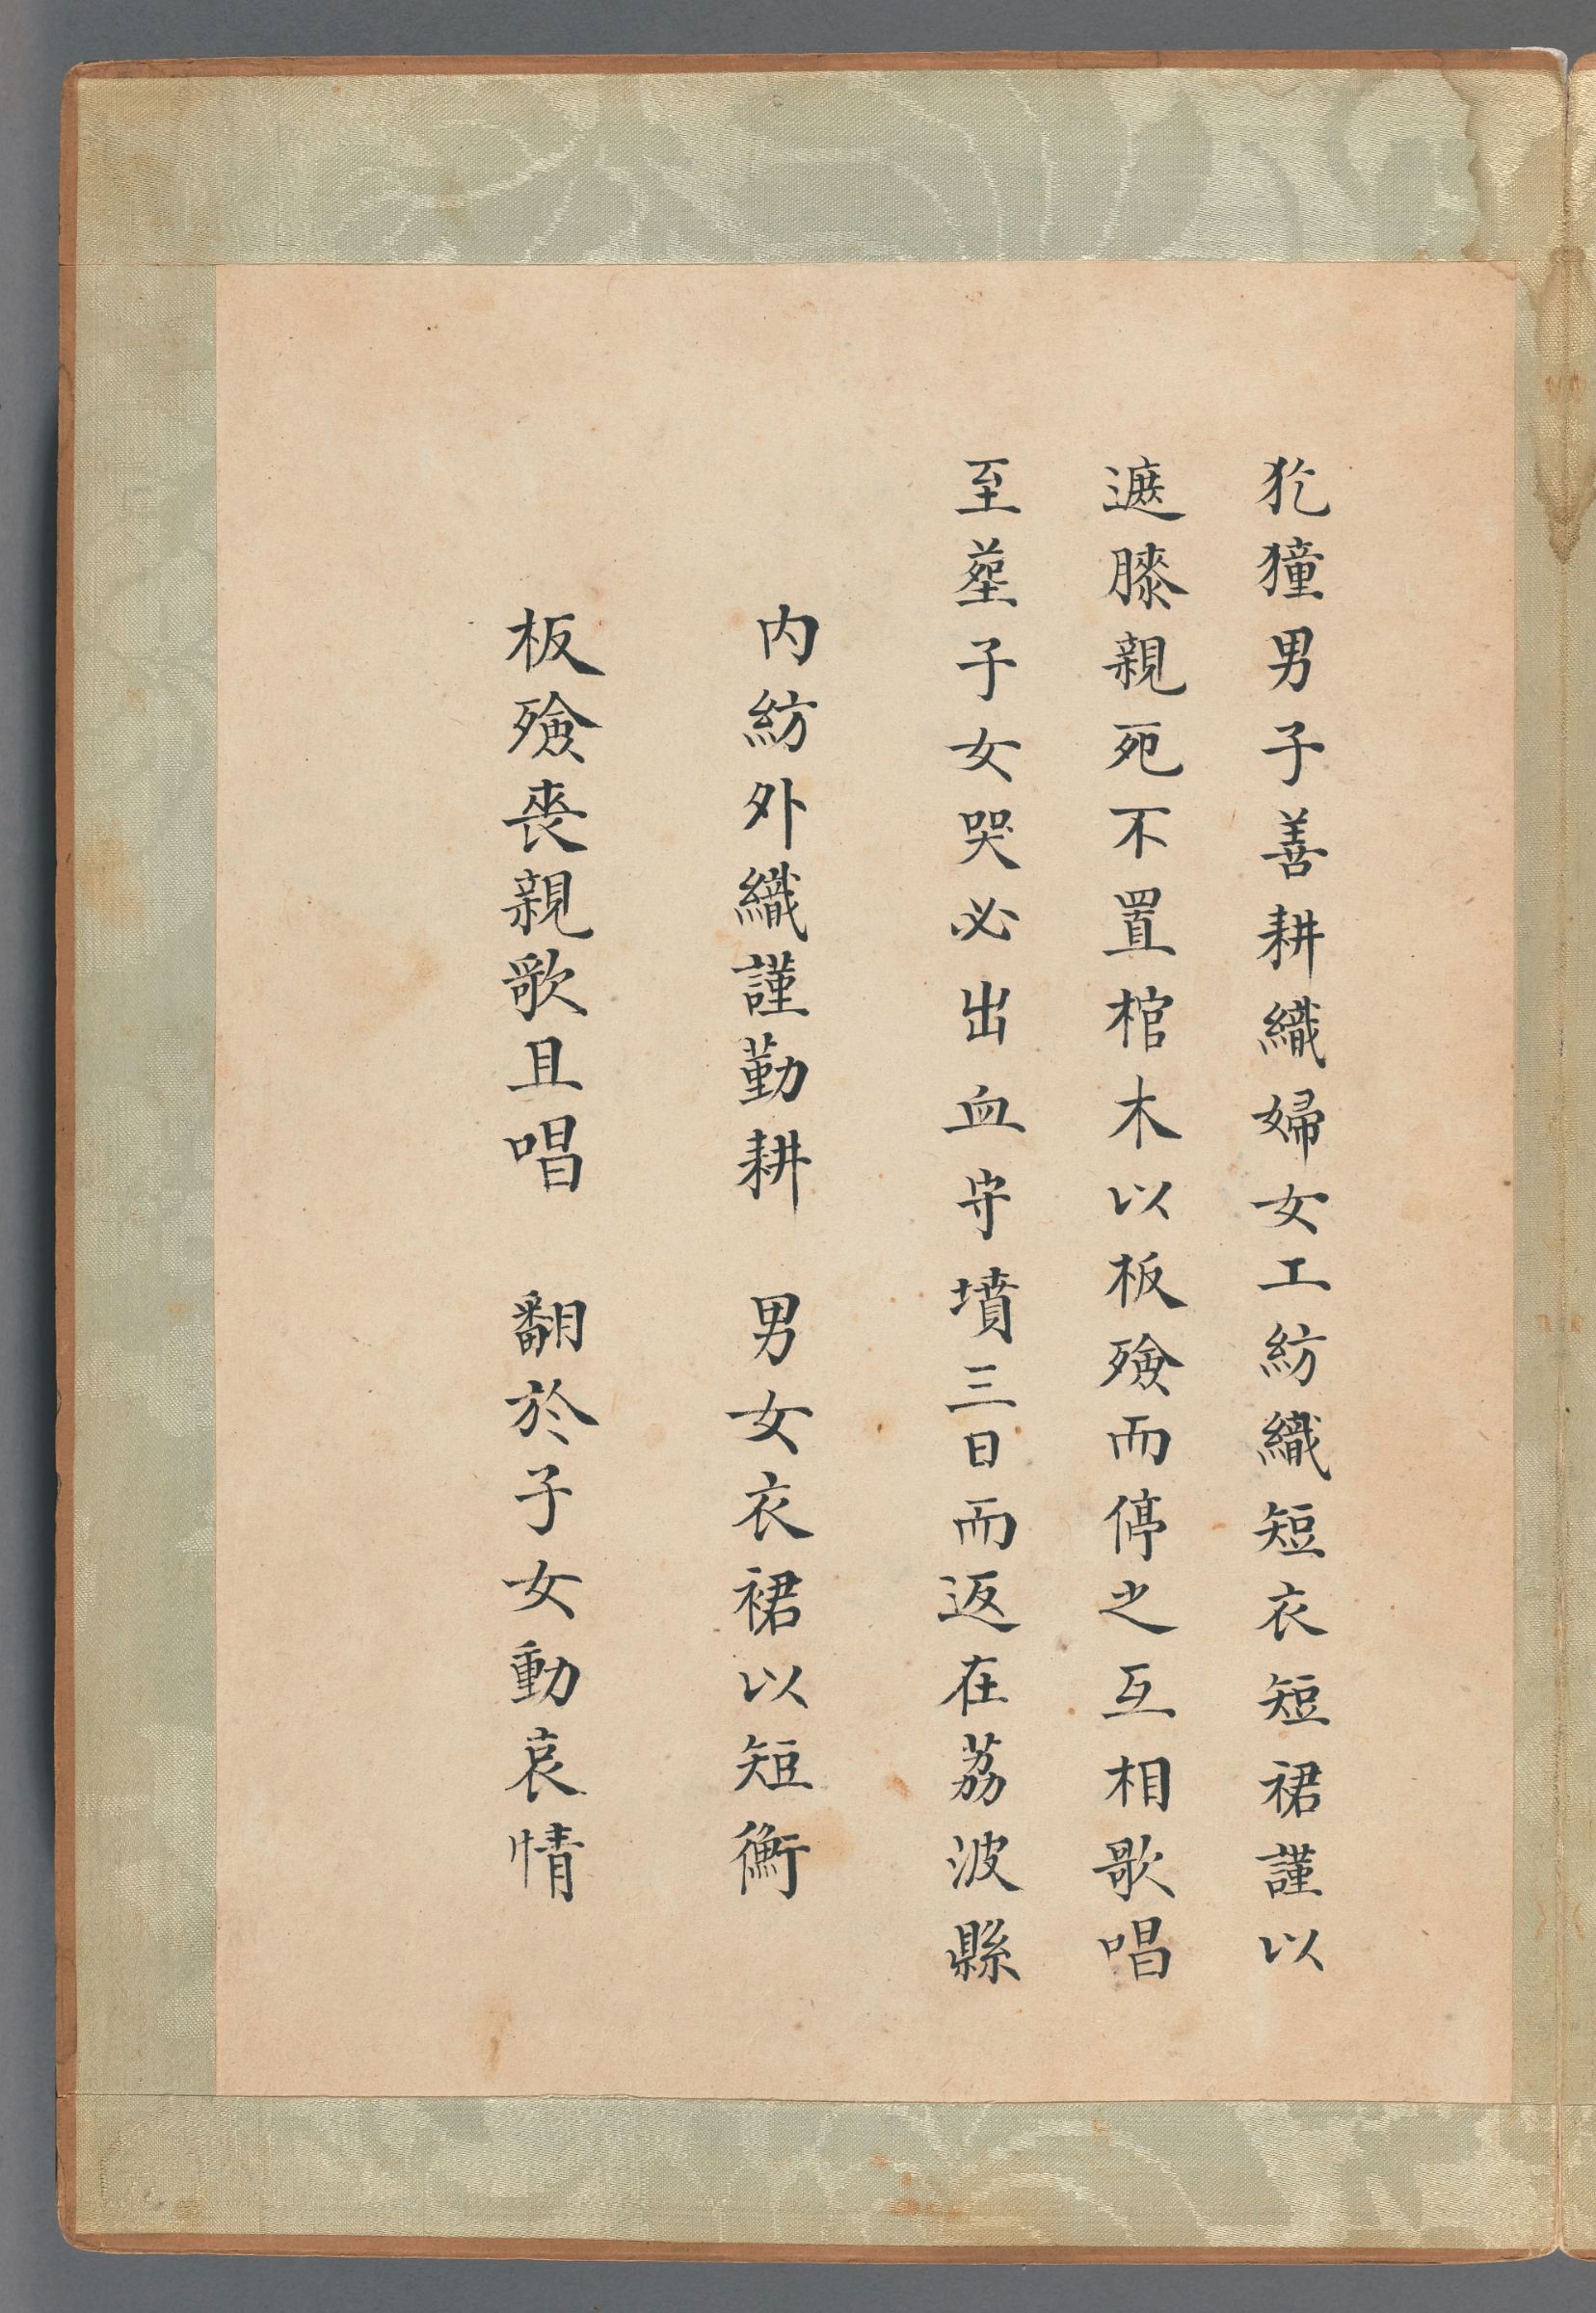 犵獞男子善耕織婦女工紡織短衣短裙謹以
遮膝親死不置棺木以板殮而停之互相歌唱
至塟子女哭必出血守墳三日而返在荔波縣
内紡外織謹勤耕　男女衣裙以短衡
板殮丧親歌且唱　翻於子女動哀情